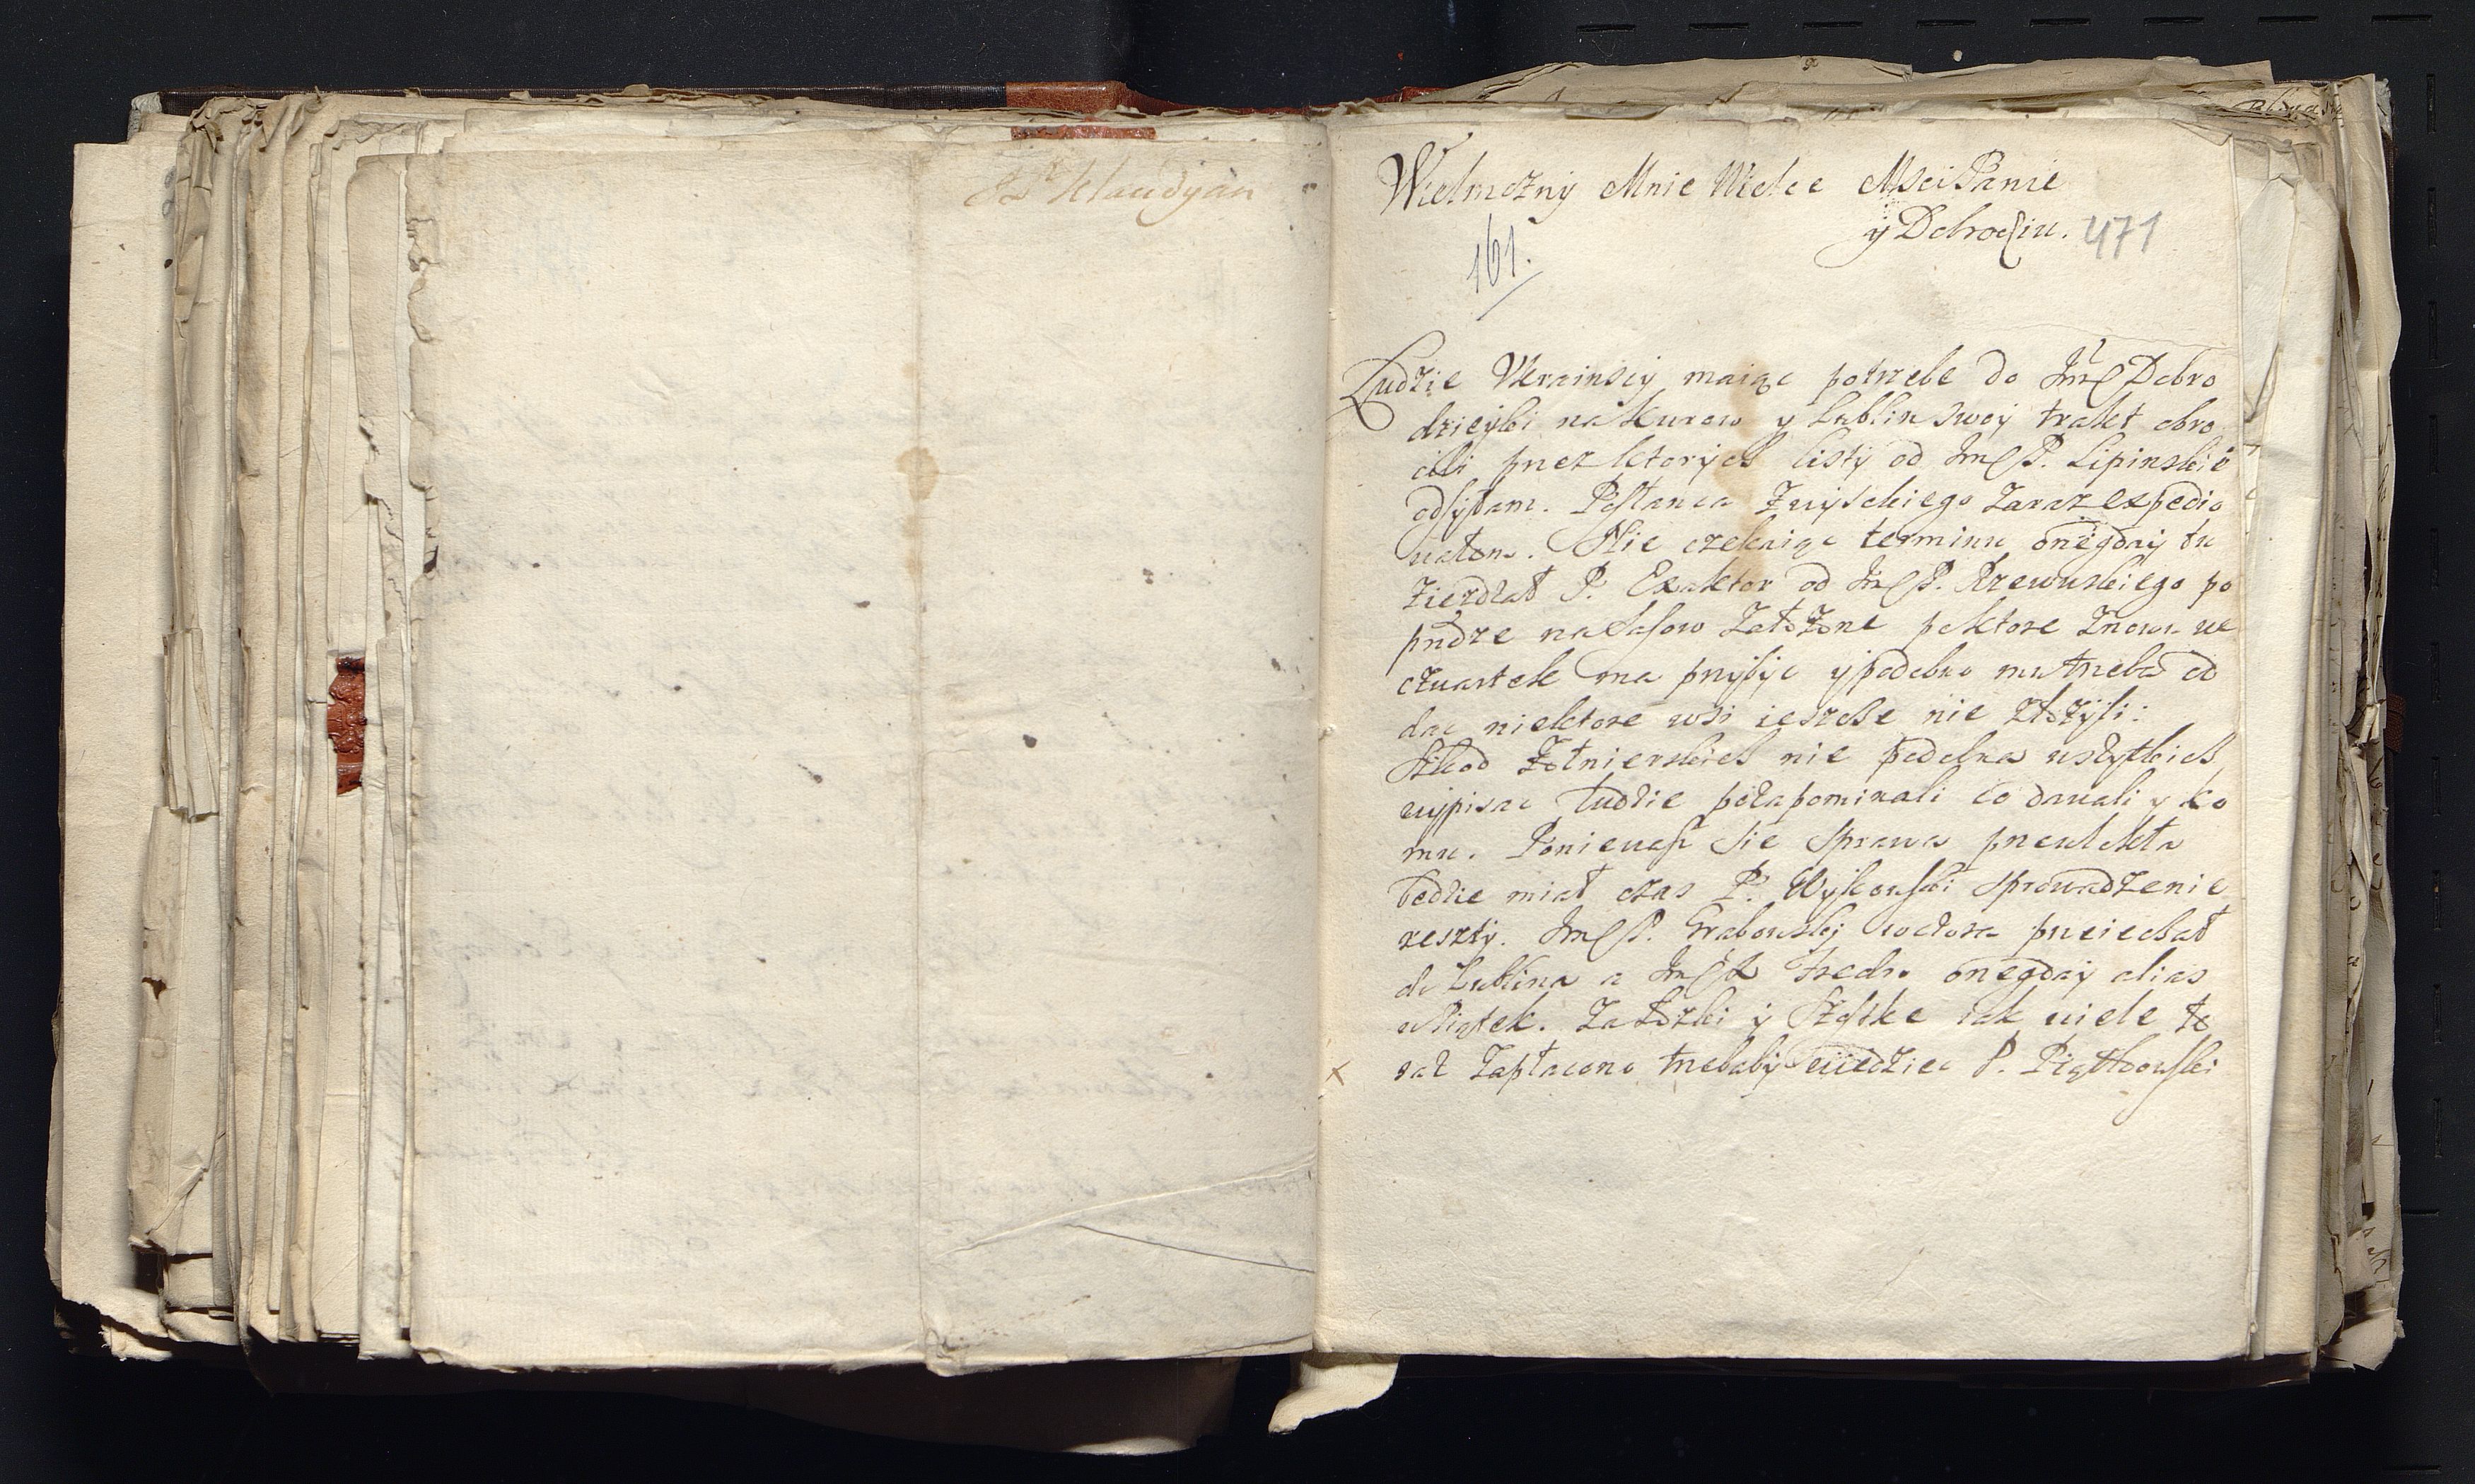 Xr Klaudyan
Wielmożny Mnie Wielce Msci Panie
y Dobrodziu. 471
161.
Ludzie Ukrainscy maiąc potrzebe do Jm Dobro
dzieyki na Kurow y Lublin swoy trakt obro
cili przez ktorych listy od Jm P. Lipinskie
odsyłam. Posłanca Zwyskiego zaraz expedio
wałem. Nie czekaiąc terminu onegday tu
ziezdzał P. Exaktor od Jm P. Rzewuskiego po
pndze na Sasow założone po ktore znowu we
czwartek ma przybyc y podobno mu trzeba od
dac niektore wsi ieszcze nie złożyli:
Szkod Żołnierskich nie podobna wszytkich
wypisac ludzie pozapominali co dawali y ko
mu. Poniewasz sie sprawa przewlekła
bedzie miał czas P. Wyskowski sprowadzenie
reszty. Jm P. Grabowsky wczora przeiechał
do Lublina a Jm X Fredro onegday alias
w Piątek. Za Łozki y Szostke iak wiele to
raz zapłacono trzebaby wiedziec P. Piątkowski